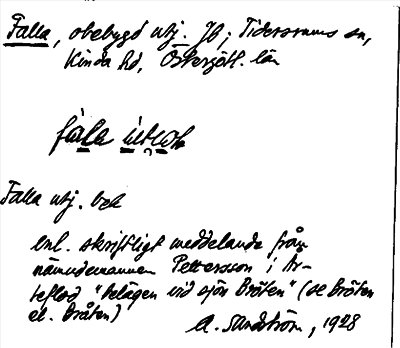 Falla, obebygd utj. Jb; Tidersrums sn,
Kinda hd, Östergötl. län
Falla utj. bek
enl. skriftligt meddelande från
nämndemannen Pettersson i Ar-
teflod "belägen vid sjön Bröten" (se Bröten
el. Bråten)
A. Sandström, 1928